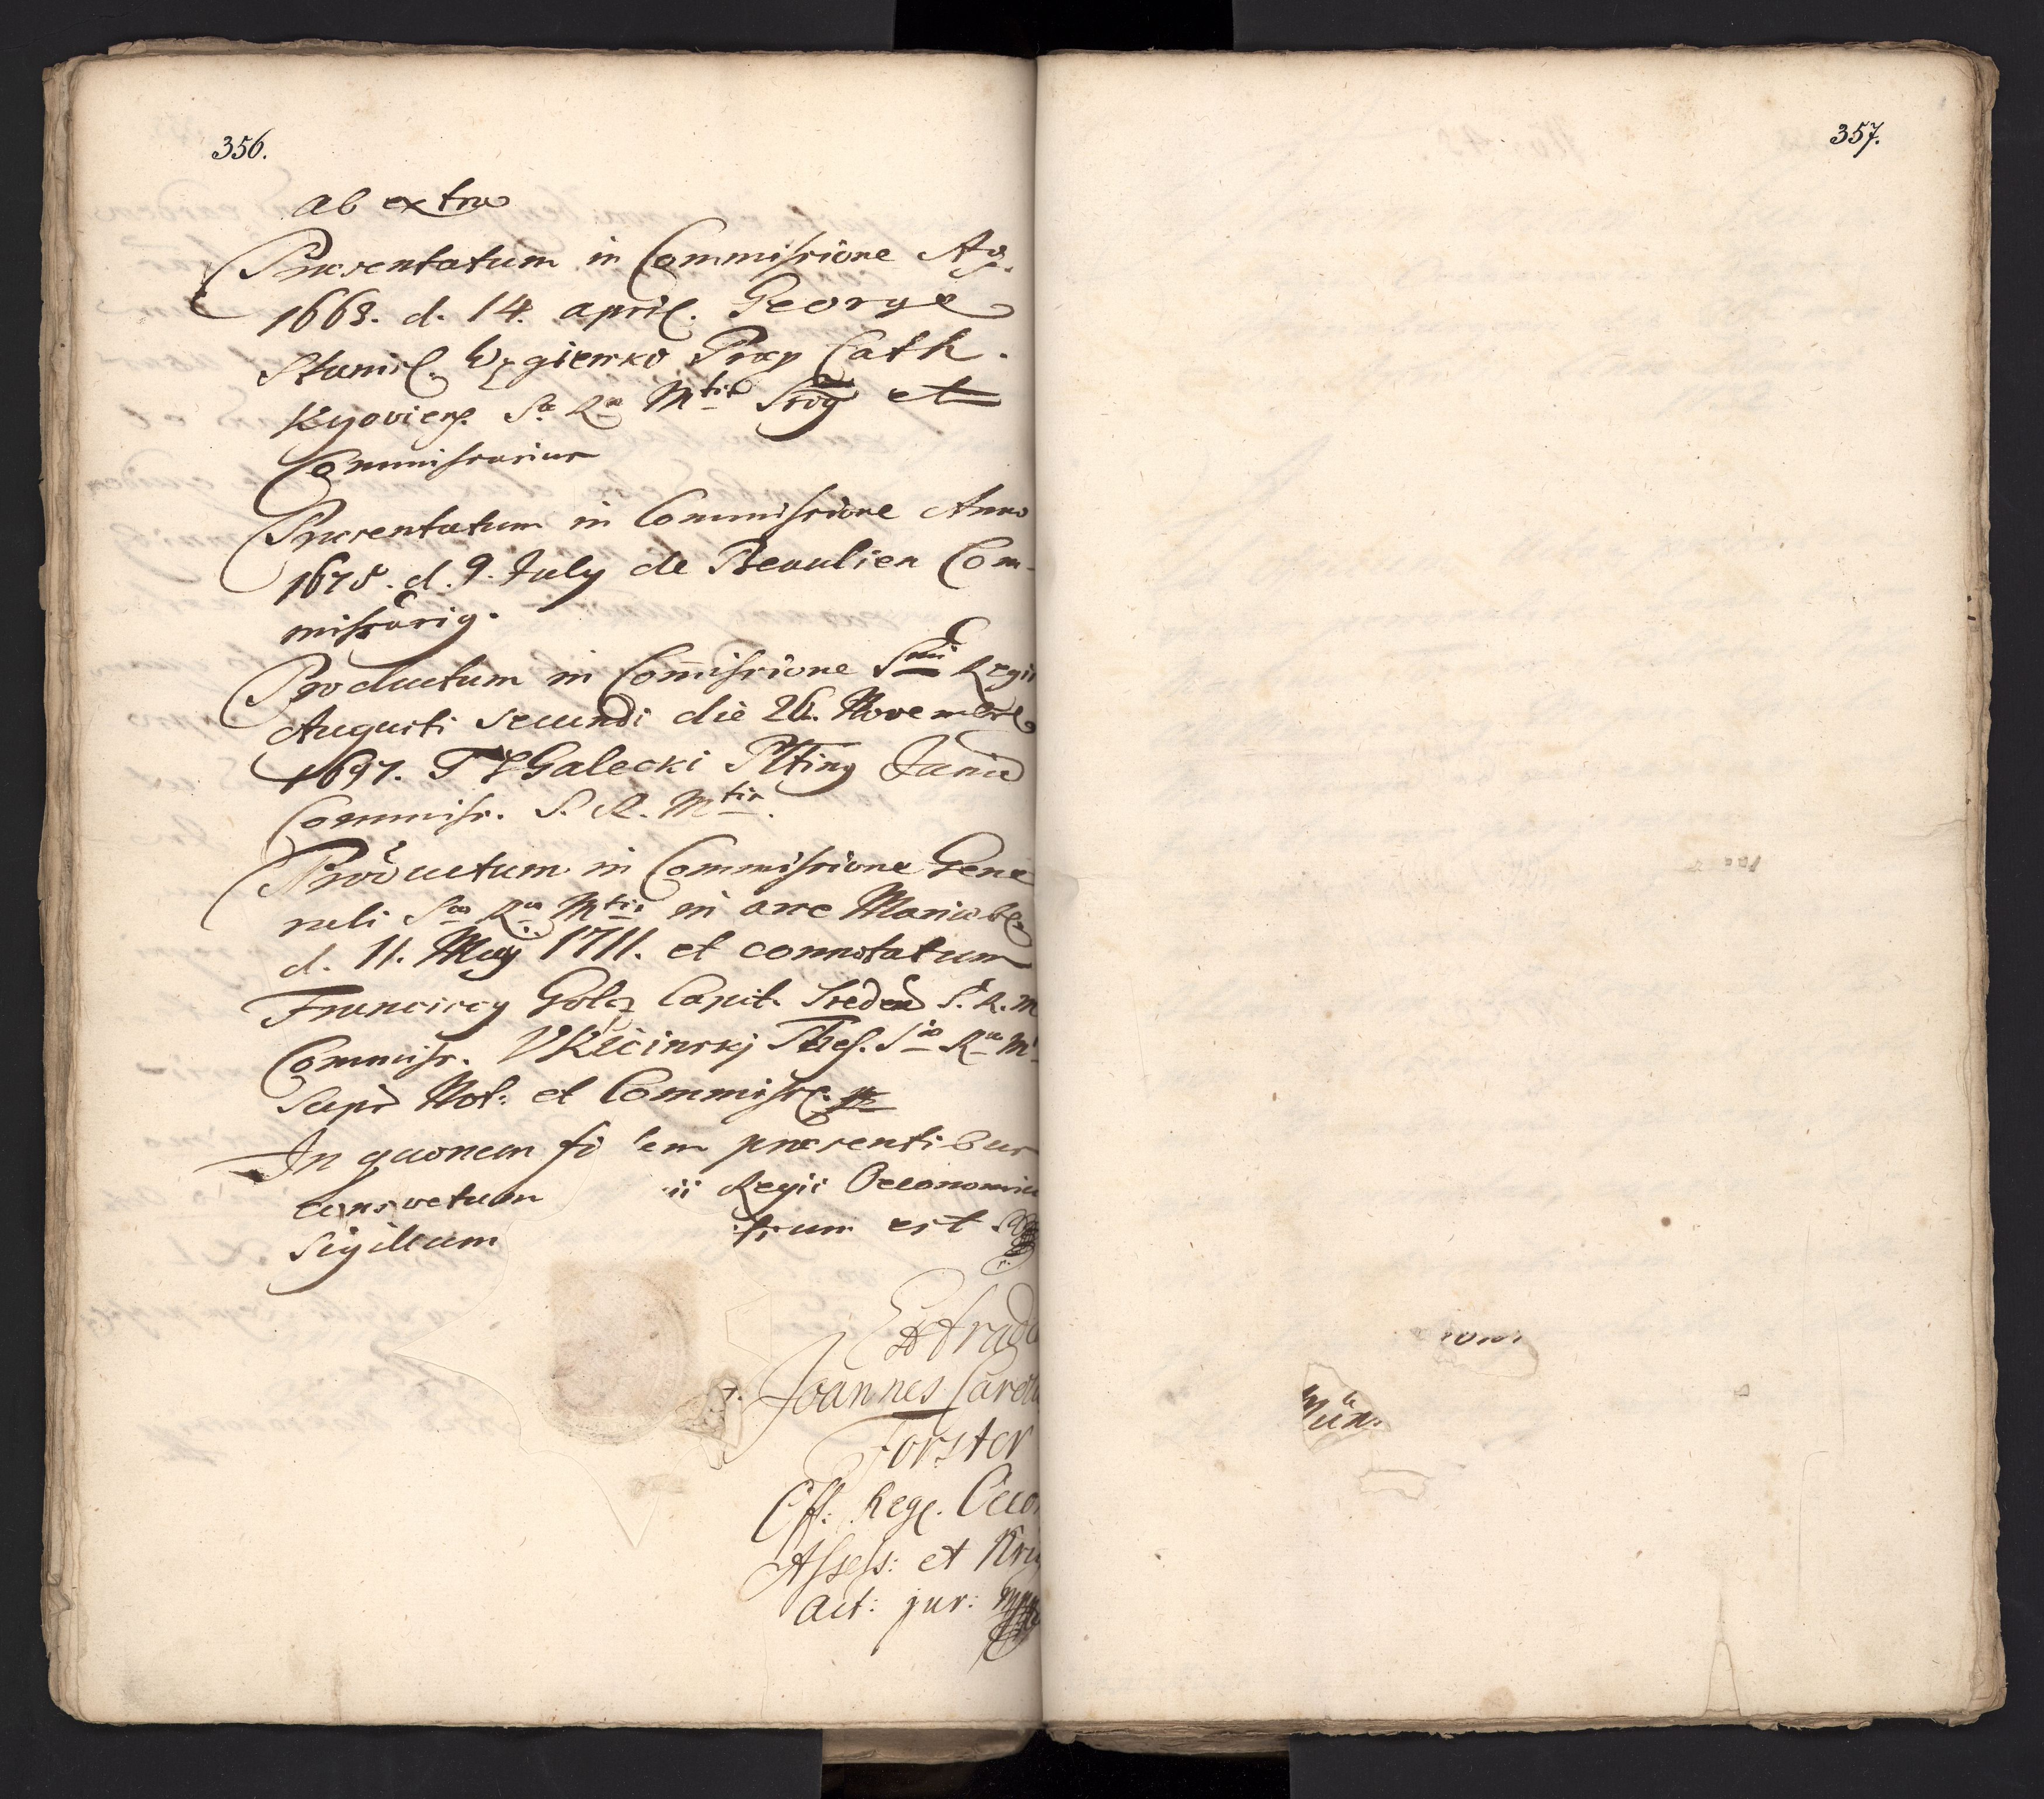 356.
ab extra
Praesentatum in Commissione Ao.
1663. d. 14. april. George
Stanisl. Węgierko Praep Cath.
Kyoviens. Sae Rae Mtis et
Commissarius
Praesentatum in Commissione Anno
1675. d. 9. July de Beaulieu Com-
missarig.
Productum in Comissione Smi Regis
Augusti Secundi die 26. Novembr
1697. Galecki
Commiss. S. R. Mtis.
Productum in Commissione Gene
rali Sae Rae Mtis in arce Mariaeb
d. 11. May 1711. et connotatum
Franciscy Golcz Capit. Sreden S. R. M
Commiss. Thes. Sae Rae M
Supr Not: et Commiss.
In quorum fi dem praesentibus
consvetum ii Regii Oeconomiae
Sigillum ssum est
Extrad
Joannes Carolu
Forster
Off: Regl. Oecon
Assess: et
Act: jur: mpp
357.